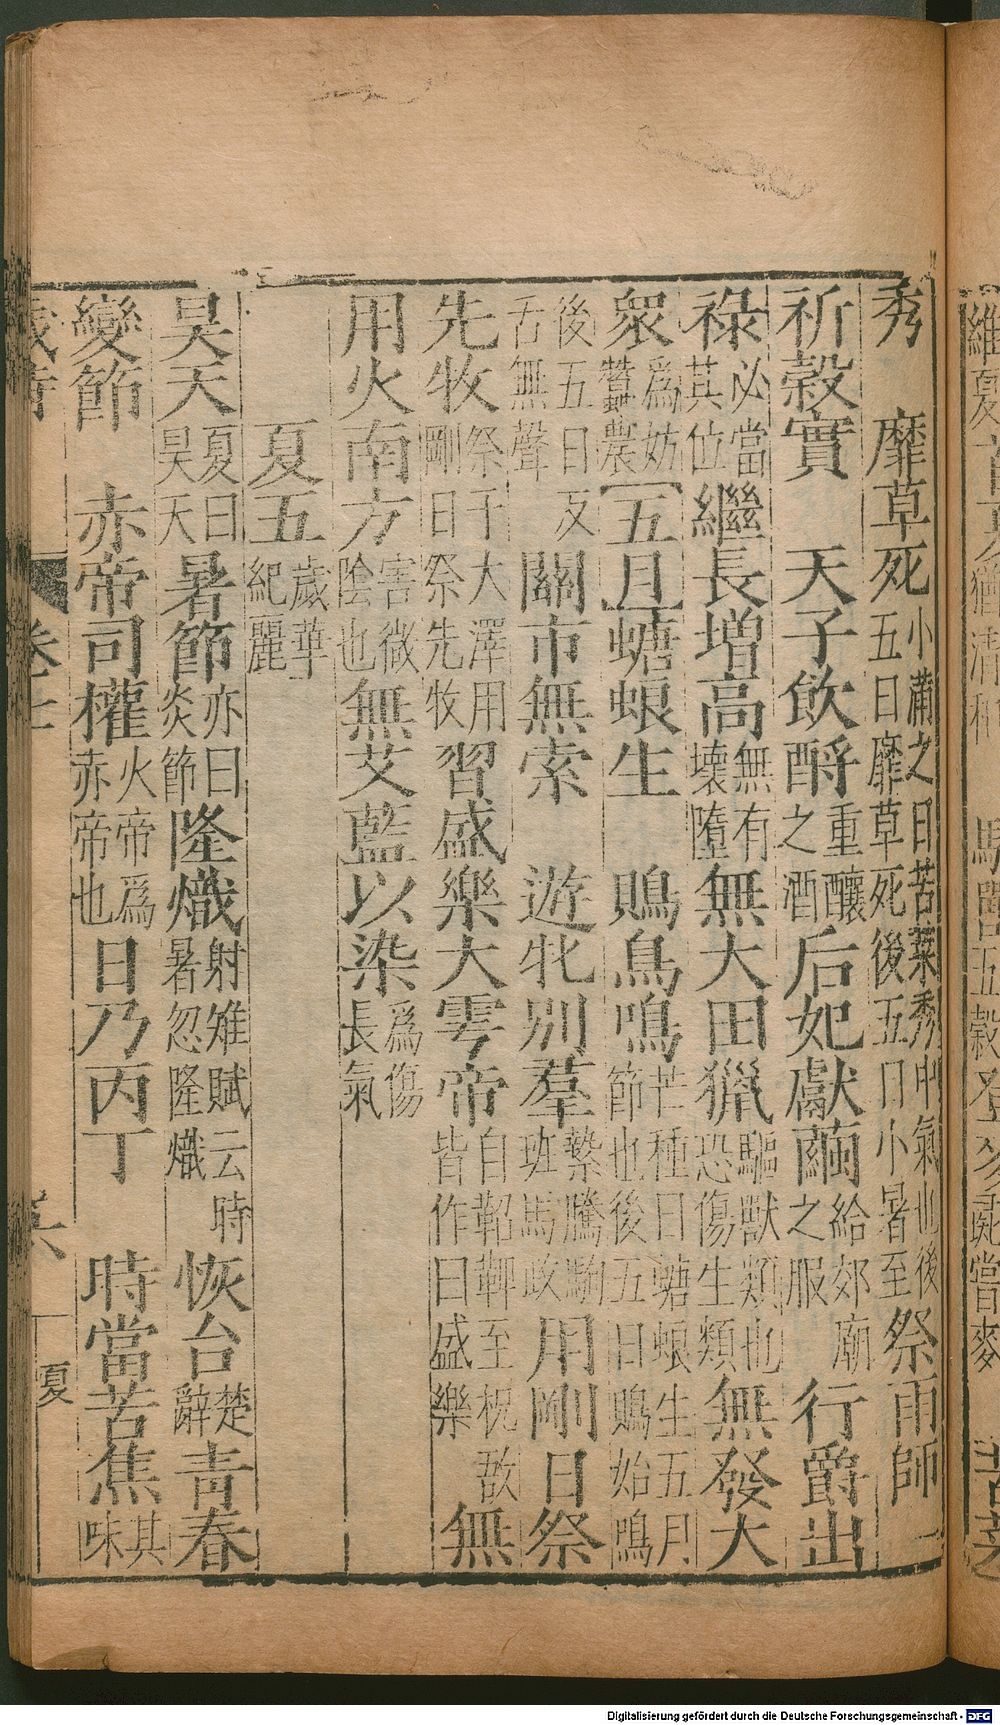 秀　靡草死小滿之日苦菜秀中氣也後五日靡草死後五日小暑至祭雨師
祈穀實　天子飲酎重釀之酒后妃獻繭給郊廟之服　行爵出
祿必當其位繼長增高無有壞墮無大田獵驅獸類也恐傷生類無發大
衆爲妨蠶農五月螗蜋生　鵙鳥鳴芒種日螗蜋生五月節也後五日鵙始鳴
後五日反舌無聲　關市無索　遊牝別羣縶騰駒班馬政用剛日祭
先牧祭于大澤用剛日祭先牧習盛樂大雩帝自鞀鞞至柷敔皆作曰盛樂　無
用火南方害微陰也無艾藍以染爲傷長氣
夏五歲華紀麗
昊天夏曰昊天暑節亦曰炎節隆熾射雉賦云時暑忽隆熾恢台楚辭靑春
變節　赤帝司權火帝爲赤帝也日乃丙丁　時當苦焦其味
卷十
夏
Digitalisierung gefördert durch die Deutsche Forschungsgemeinschaft - DFG